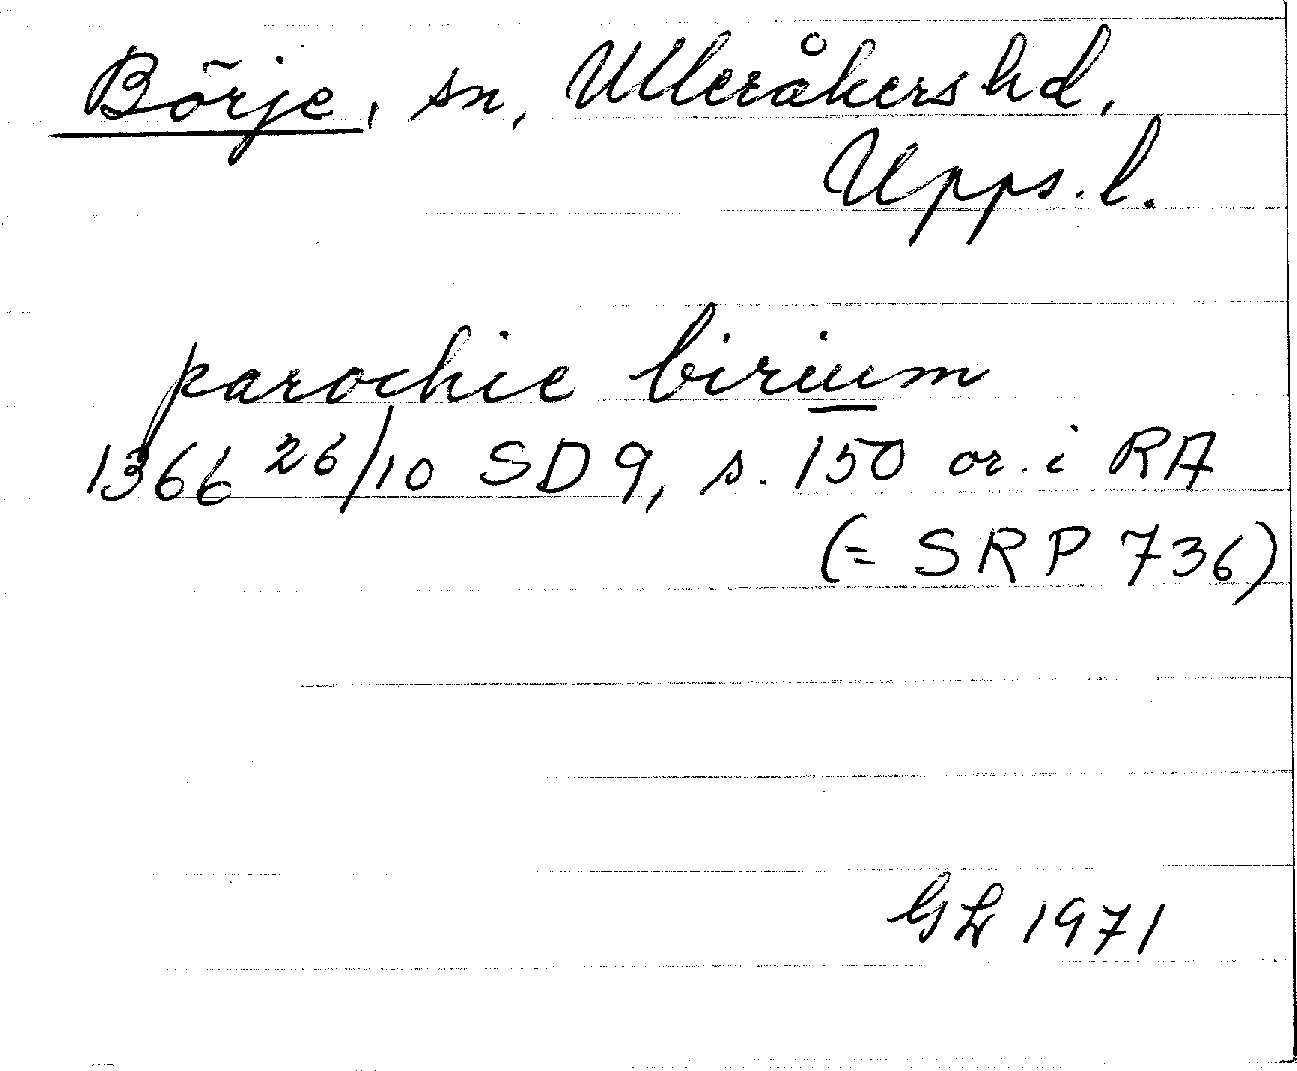 Börje, sn, Ulleråkers hd,
Upps. l.
parochie birium
1366 26/10 SD 9, s. 150 or. i RA
(= SRP 736)
GL 1971